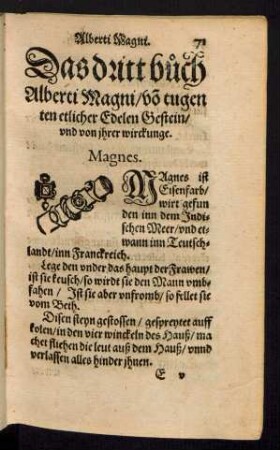 Alberti Magni. 71
Das dritt bůch
Alberti Magni / võ tugen
ten etlicher Edelen Gestein /
vnd von jhrer wirckunge.
Magnes.
MAgnes ist
Eisenfarb /
wirt gefun
den inn dem Indi=
schen Meer / vnd et=
wann inn Teutsch=
landt / inn Franckreich.
Lege den vnder das haupt der Frawen /
ist sie keusch / so wirdt sie den Mann vmb=
fahen / Ist sie aber vnfromb / so fellet sie
vom Beth.
Disen steyn gestossen / gespreytet auff
kolen / in den vier winckeln des Hauß / ma
chet fliehen die leut auß dem Hauß / vnnd
verlassen alles hinder jhnen.
E v